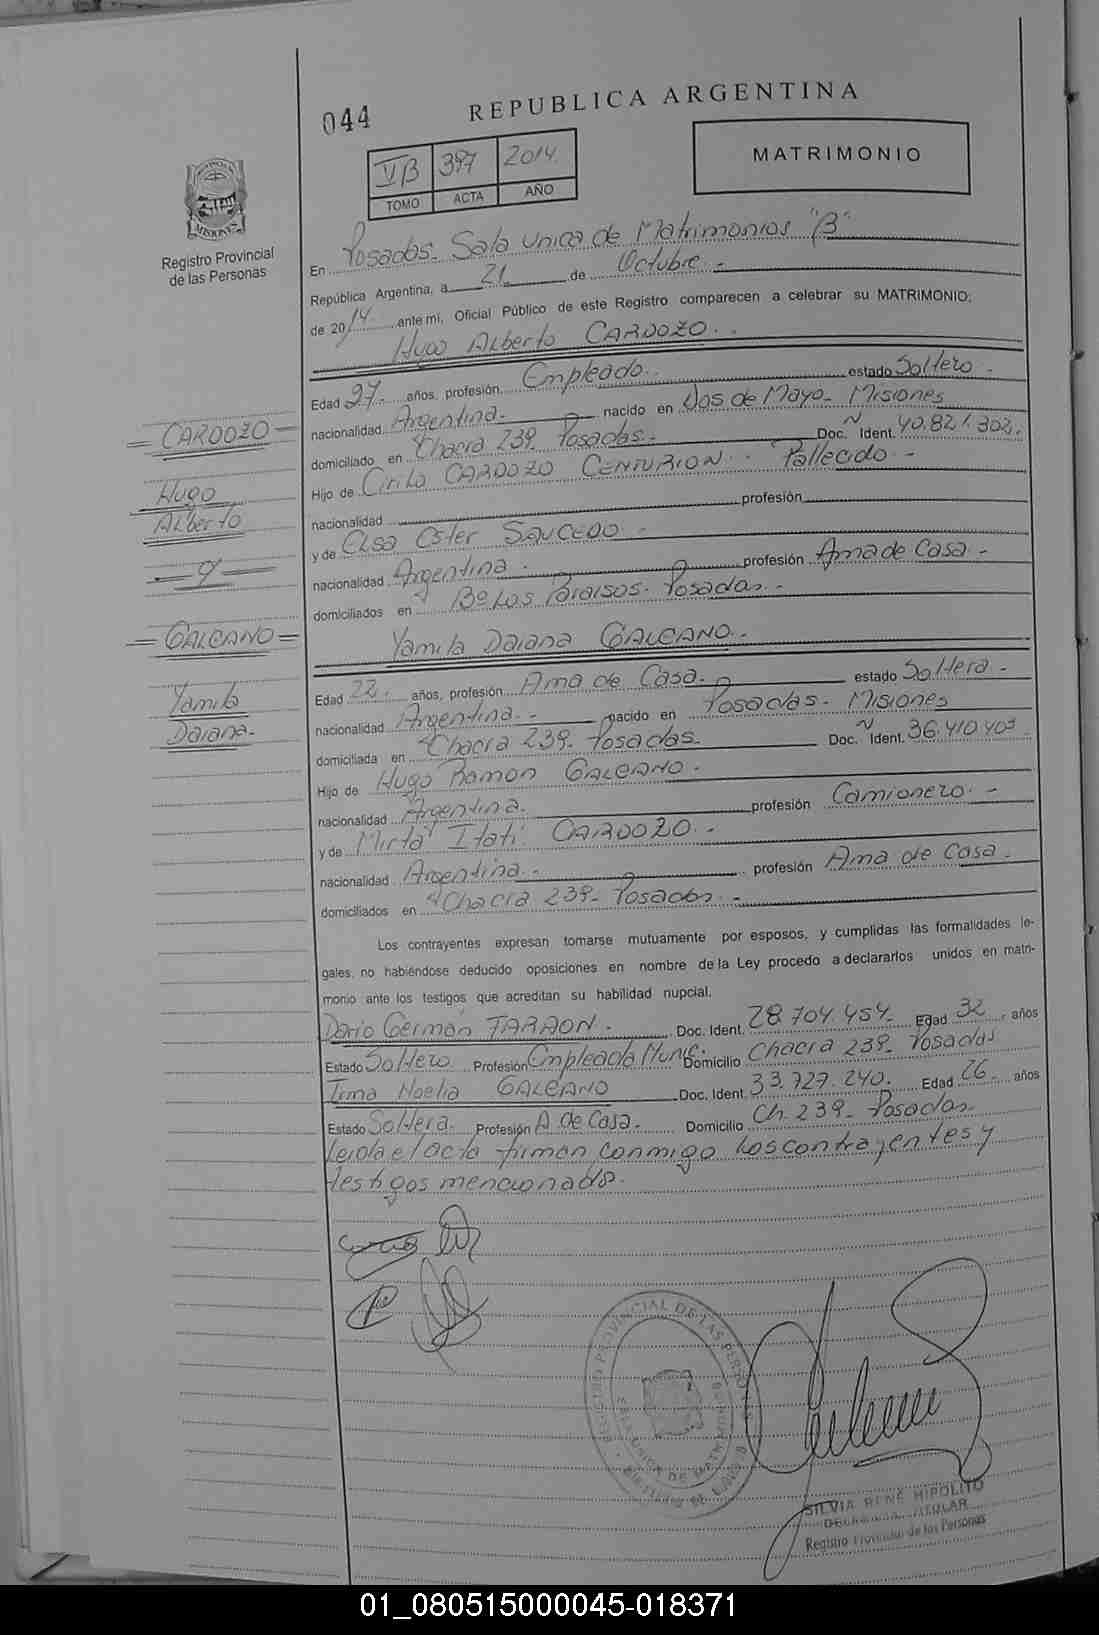 044
REPUBLICA ARGENTINA
VB 397 2014
TOMO ACTA AÑO
MATRIMONIO
MISIONES
Registro Provincial
de las Personas
En Posadas. Sala unica de Matrimonios "B"
República Argentina, a 21 de Octubre.-
de 2014 ante mi, Oficial Público de este Registro comparecen a celebrar su MATRIMONIO:
Hugo Alberto CARDOZO.-
Edad 27.- años, profesión Empleado.- estado Soltero.-
nacionalidad Argentina.- nacido en Dos de Mayo- Misiones
domiciliado en Chacra 239. Posadas.- Doc. Ident. 40.821.302.
Hijo de Cirilo CARDOZO CENTURION.- Fallecido.-
nacionalidad profesión
y de Elsa Ester SAUCEDO.-
nacionalidad Argentina.- profesión Ama de Casa.-
domiciliados en Bº Los Paraisos. Posadas.-
Yamila Daiana GALEANO.-
Edad 22. años, profesión Ama de Casa.- estado Soltera.-
nacionalidad Argentina.- nacido en Posadas- Misiones
domiciliada en Chacra 239- Posadas. Doc. Ident. 36.410.403
Hijo de Hugo Ramon GALEANO.-
nacionalidad Argentina. profesión Camionero.-
y de Mirta Itati CARDOZO.-
nacionalidad Argentina.- profesión Ama de Casa.
domiciliados en Chacra 239- Posadas.-
= CARDOZO =
Hugo
Alberto
= y =
= GALEANO =
Yamila
Daiana.-
Los contrayentes expresan tomarse mutuamente por esposos, y cumplidas las formalidades le-
gales, no habiéndose deducido oposiciones en nombre de la Ley procedo a declararlos unidos en matri-
monio ante los testigos que acreditan su habilidad nupcial.
Dario Germán Doc. Ident. 28.704.454.- Edad 32 años
Estado Soltero Profesión Empleada Munic. Domicilio Chacra 239- Posadas
Irma Noelia GALEANO Doc. Ident. 33.727.240. Edad 26. años
Estado Soltera. Profesión A. de Casa. Domicilio Ch. 239- Posadas.
Leida el acta firman conmigo los contrayentes y
testigos mencionado.
REGISTRO PROVINCIAL DE LAS PERSONAS
SALA UNICA DE MATRIMONIOS
SILVIA RENE HIPOLITO
TITULAR
Registro Provincial de las Personas
01_080515000045-018371